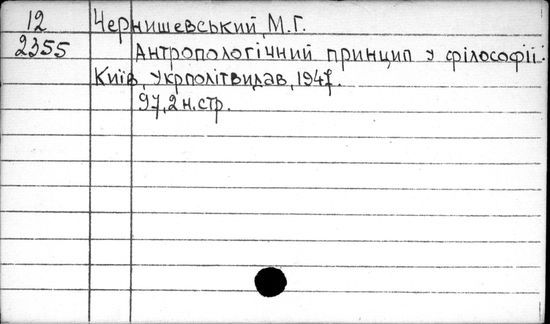 12 Чернишевський, М.Г.
2355 Антропологічний принцип у філософії.
Київ, Укрполітвидав, 1947.
97, 2 н.стр.